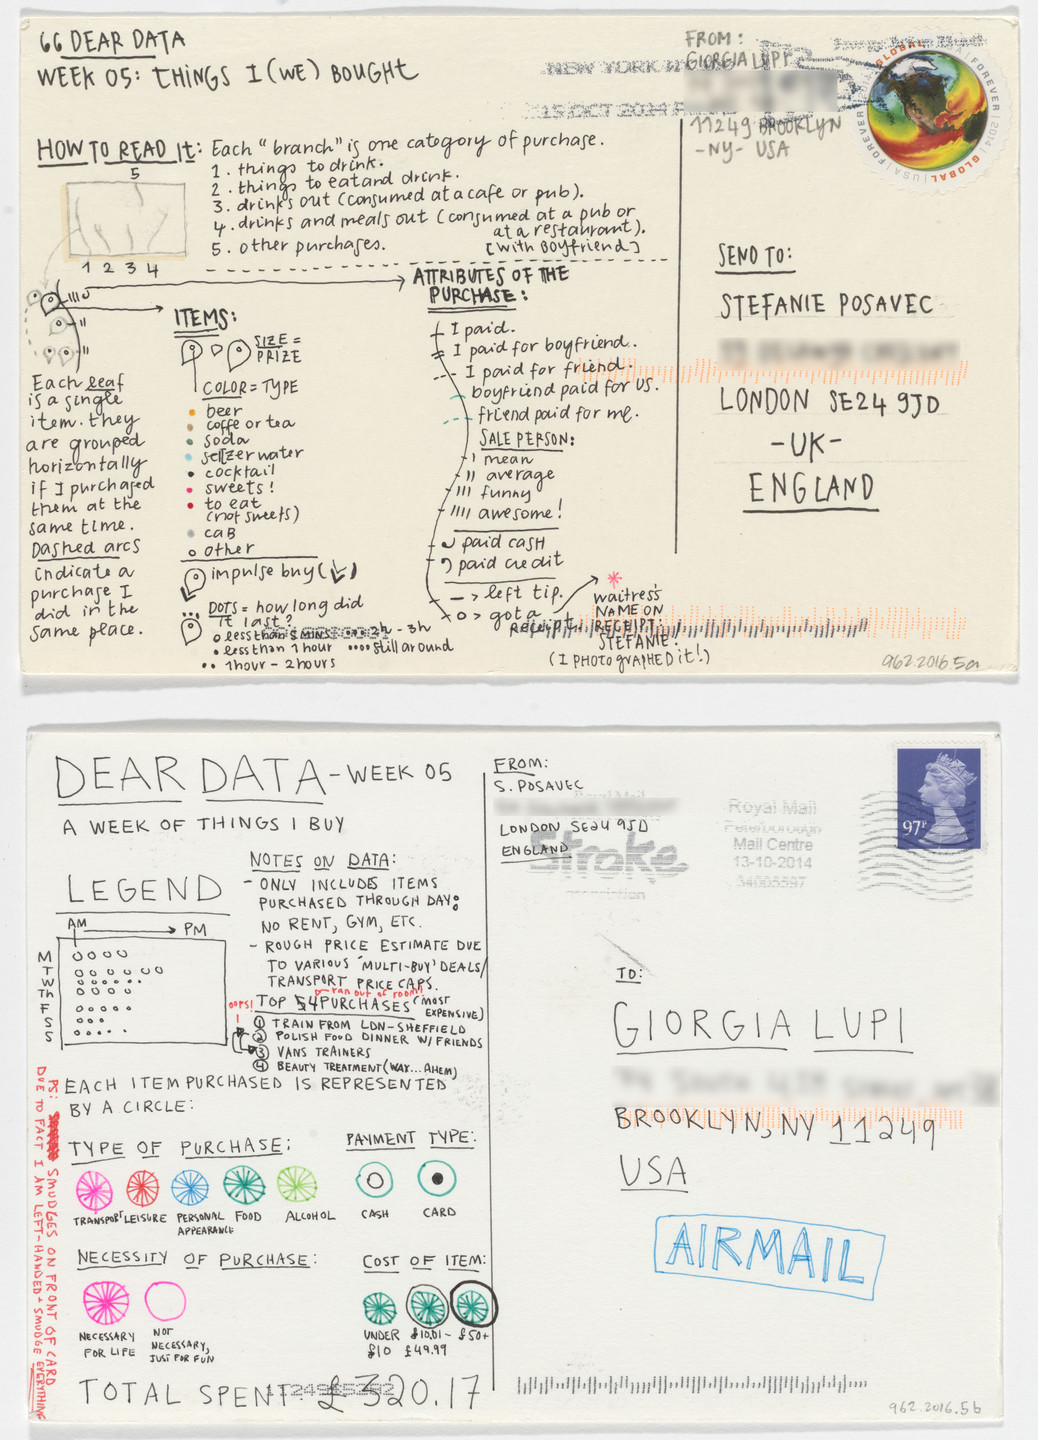 66 DEAR DATA
WEEK 05: THINGS I (WE) BOUGHT
HOW TO READ IT: Each "branch" is one category of purchase.
1. things to drink.
2. things to eat and drink.
3. drinks out (consumed at a cafe or pub).
4. drinks and meals out (consumed at a pub or
at a restaurant).
5. other purchases. [with BOYfriend]
5
1 2 3 4
ATTRIBUTES OF THE
PURCHASE:
Each leaf
is a single
item. they
are grouped
horizontally
if I purchased
them at the
same time.
Dashed arcs
indicate a
purchase I
did in the
same place.
ITEMS:
SIZE =
PRIZE
COLOR = TYPE
beer
coffe or tea
soda
seltzer water
cocktail
sweets!
to eat
(not sweets)
caB
other
impulse buy (
)
DOTS = how long did
it last?
less than 5 MINS
2h - 3h
less than 1 hour
still around
1 hour - 2 hours
I paid.
I paid for boyfriend.
I paid for friend.
boyfriend paid for us.
friend paid for me.
SALE PERSON:
mean
average
funny
awesome!
paid cash
paid credit
left tip.
got a
Receipt.
waitress's
NAME ON
RECEIPT:
STEFANIE.
(I PHOTOGRAPHED it!)
FROM:
GIORGIA LUPI
11249 BROOKLYN
-NY- USA
NEW YORK
15 OCT 2014
GLOBAL
USA FOREVER
2014
SEND TO:
STEFANIE POSAVEC
LONDON SE24 9JD
-UK-
ENGLAND
962.2016.5a
DEAR DATA - WEEK 05
A WEEK OF THINGS I BUY
LEGEND
AM
PM
M
T
W
Th
F
S
S
NOTES ON DATA:
- ONLY INCLUDES ITEMS
PURCHASED THROUGH DAY:
NO RENT, GYM, ETC.
- ROUGH PRICE ESTIMATE DUE
TO VARIOUS 'MULTI-BUY' DEALS/
TRANSPORT PRICE CAPS.
ran out of room!
OOPS!
TOP 54 PURCHASES (MOST
EXPENSIVE)
1 TRAIN FROM LDN-SHEFFIELD
2 POLISH FOOD DINNER W/ FRIENDS
3 VANS TRAINERS
4 BEAUTY TREATMENT (WAX... AHEM)
EACH ITEM PURCHASED IS REPRESENTED
BY A CIRCLE:
TYPE OF PURCHASE:
TRANSPORT
LEISURE
PERSONAL
APPEARANCE
FOOD
ALCOHOL
PAYMENT TYPE:
CASH
CARD
NECESSITY OF PURCHASE:
NECESSARY
FOR LIFE
NOT
NECESSARY,
JUST FOR FUN
COST OF ITEM:
UNDER
£10
£10.01-
£49.99
£50+
TOTAL SPENT: £320.17
PS: SMUDGES ON FRONT OF CARD
DUE TO FACT I AM LEFT-HANDED + SMUDGE EVERYTHING
FROM:
S. POSAVEC
LONDON SE24 9JD
ENGLAND
Royal Mail
Stroke
Royal Mail
Peterborough
Mail Centre
13-10-2014
97P
TO:
GIORGIA LUPI
BROOKLYN, NY 11249
USA
AIRMAIL
962.2016.5b